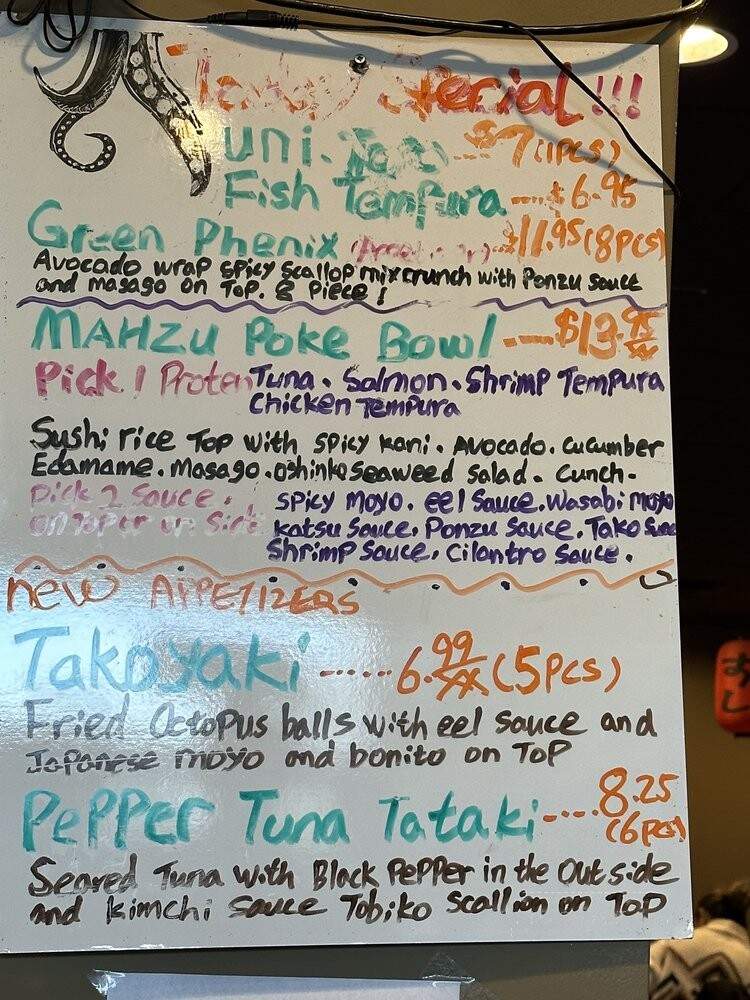 Today Special!!!
Uni. Taco ...$7 (1pcs)
Fish Tempura ...$6.95
Green Phenix (Appetizer) ..$11.95 (8pcs)
Avocado wrap spicy scallop mix crunch with Ponzu sauce
and masago on Top. 8 piece!
MAHZU Poke Bowl ....$13.95
Pick 1 Proten Tuna. Salmon. Shrimp Tempura
chicken Tempura
Sushi rice Top with spicy kani. Avocado. cucumber
Edamame. masago. oshinko seaweed salad. Cunch.
Pick 2 Sauce. spicy moyo. eel Sauce. Wasabi moyo
on Top or on Side katsu Sauce, Ponzu Sauce. Tako Sauce
Shrimp Sauce, Cilantro Sauce.
new APPETIZERS
Takoyaki .....6.99 (5pcs)
Fried Octopus balls with eel sauce and
Japanese moyo and bonito on Top
Pepper Tuna Tataki ....8.25
(6pcs)
Seared Tuna with Black Pepper in the Out side
and kimchi sauce Tobiko scallion on Top
すし